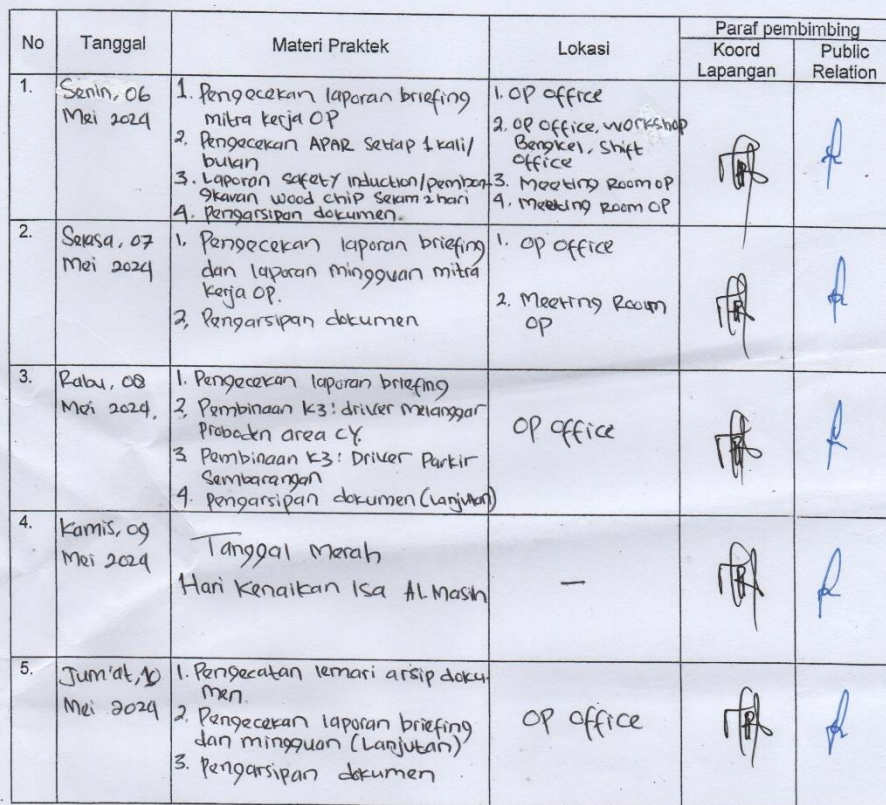 No Tanggal Materi Praktek Lokasi Paraf pembimbing
Koord Lapangan Public Relation
1. Senin, 06
Mei 2024
1. Pengecekan laporan briefing
mitra kerja OP
2. Pengecekan APAR setiap 1 kali/
bulan
3. Laporan safety induction/pembon-
gkaran wood chip selam 2 hari
4. Pengarsipan dokumen.
1. OP office
2. OP office, workshop
Bengkel, Shift
office
3. Meeting Room OP
4. Meeting Room OP
2. Selasa, 07
Mei 2024
1. Pengecekan laporan briefing
dan laporan mingguan mitra
kerja OP.
2. Pengarsipan dokumen
1. OP office
2. Meeting Room
OP
3. Rabu, 08
Mei 2024.
1. Pengecekan laporan briefing
2. Pembinaan K3: driver melanggar
area CY.
3. Pembinaan K3: Driver Parkir
Sembarangan
4. Pengarsipan dokumen (Lanjutan)
OP office
4. Kamis, 09
Mei 2024
Tanggal merah
Hari Kenaikan Isa Al Masih
—
5. Jum'at, 10
Mei 2024
1. Pengecatan lemari arsip doku-
men.
2. Pengecekan laporan briefing
dan mingguan (Lanjutan)
3. Pengarsipan dokumen
OP office